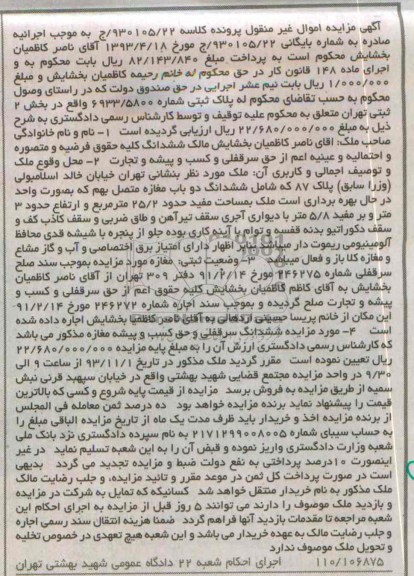 آگهی مزایده اموال غیر منقول پرونده کلاسه ۹۳۰۱۰۵/۲۲/ج به موجب اجرائیه
صادره به شماره بایگانی ۹۳۰۱۰۵/۲۲/ج مورخ ۱۳۹۳/۴/۱۸ آقای ناصر کاظمیان
بخشایش محکوم است به پرداخت مبلغ ۸۲/۱۴۳/۸۴۰ ریال بابت محکوم به و
اجرای ماده ۱۴۸ قانون کار در حق محکوم له خانم رحیمه کاظمیان بخشایش و مبلغ
۱/۰۰۰/۰۰۰ ریال بابت نیم عشر اجرایی در حق صندوق دولت که در راستای وصول
محکوم به حسب تقاضای محکوم له پلاک ثبتی شماره ۶۹۳۳/۵۸۰۰ واقع در بخش ۲
ثبتی تهران متعلق به محکوم علیه توقیف و توسط کارشناس رسمی دادگستری به شرح
ذیل به مبلغ ۲۲/۶۸۰/۰۰۰/۰۰۰ ریال ارزیابی گردیده است ۱- نام و نام خانوادگی
صاحب ملک: اقای ناصر کاظمیان بخشایش مالک ششدانگ کلیه حقوق فرضیه و متصوره
و احتمالیه و عینیه اعم از حق سرقفلی و کسب و پیشه و تجارت ۲- محل وقوع ملک
و توصیف اجمالی و کاربری آن: ملک مورد نظر بنشانی تهران خیابان خالد اسلامبولی
(وزرا سابق) پلاک ۸۷ که شامل ششدانگ دو باب مغازه متصل بهم که بصورت واحد
در حال بهره برداری است ملک بمساحت مفید حدود ۲۵/۲ مترمربع و ارتفاع حدود ۳
متر و بر مفید ۵/۸ متر با دیواری آجری سقف تیرآهن و طاق ضربی و سقف کاذب کف و
سقف دکوراتیو بدنه قفسه و توام با آینه کاری بوده جلو از پنجره با شیشه قدی محافظ
آلومینیومی ریموت دار میباشد بنابر اظهار دارای امتیاز برق اختصاصی و آب و گاز مشاع
و مغازه کلا باز و فعال میباشد ۳- وضعیت ثبتی: مغازه مورد مزایده بموجب سند صلح
سرقفلی شماره ۲۴۶۲۷۵ مورخ ۹۱/۲/۱۴ دفتر ۳۰۹ تهران از آقای ناصر کاظمیان
بخشایش به آقای کاظم کاظمیان بخشایش کلیه حقوق اعم از حق سرقفلی و کسب و
پیشه و تجارت صلح گردیده و بموجب سند اجاره شماره ۲۴۶۲۷۲ مورخ ۹۱/۲/۱۴
این مکان از خانم پریسا حسینی اردهالی به آقای ناصر کاظمیا بخشایش اجاره داده شده
است ۴- مورد مزایده ششدانگ سرقفلی و حق کسب و پیشه مغازه مذکور می باشد
که کارشناس رسمی دادگستری ارزش آن را به مبلغ پایه مزایده ۲۲/۶۸۰/۰۰۰/۰۰۰
ریال تعیین نموده است مقرر گردید ملک مذکور در تاریخ ۹۳/۱۱/۱ از ساعت ۹ الی
۹/۳۰ در واحد مزایده مجتمع قضایی شهید بهشتی واقع در خیابان سپهبد قرنی نبش
سمیه از طریق مزایده به فروش برسد مزایده از قیمت پایه شروع و کسی که بالاترین
قیمت را پیشنهاد نماید برنده مزایده خواهد بود ده درصد ثمن معامله فی المجلس
از برنده مزایده اخذ و خریدار باید ظرف مدت یک ماه از تاریخ مزایده الباقی مبلغ را
به حساب سیبای شماره ۲۱۷۱۲۹۹۰۰۸۰۰۵ به نام سپرده دادگستری نزد بانک ملی
شعبه وزارت دادگستری واریز نموده و قبض آن را به این شعبه تسلیم نماید در غیر
اینصورت ۱۰درصد پرداختی به نفع دولت ضبط و مزایده تجدید می گردد بدیهی
است در صورت پرداخت کل ثمن در موعد مقرر و تائید مزایده، و جلب رضایت مالک
ملک مذکور به نام خریدار منتقل خواهد شد کسانیکه که تمایل به شرکت در مزایده
و بازدید ملک موصوف را دارند می توانند ۵ روز قبل از مزایده به اجرای احکام این
شعبه مراجعه تا مقدمات بازدید آنها فراهم گردد ضمنا هزینه انتقال سند رسمی اجاره
و جلب رضایت مالک به عهده خریدار می باشد و این شعبه هیچ تعهدی در خصوص تخلیه
و تحویل ملک موصوف ندارد
۱۱۰/۱۰۶۸۷۵ اجرای احکام شعبه ۲۲ دادگاه عمومی شهید بهشتی تهران